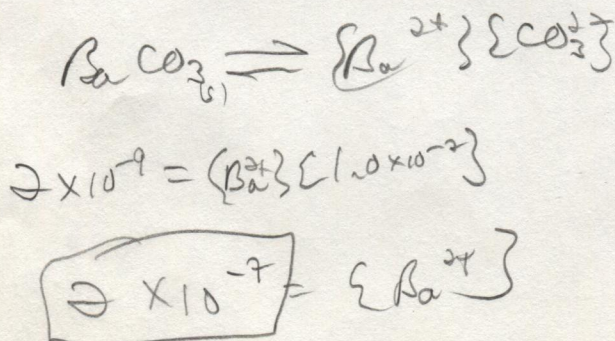 BaCO₃(s) ⇌ {Ba²⁺}{CO₃²⁻}
2 × 10⁻⁹ = {Ba²⁺}{1.0 × 10⁻²}
2 × 10⁻⁷ = {Ba²⁺}